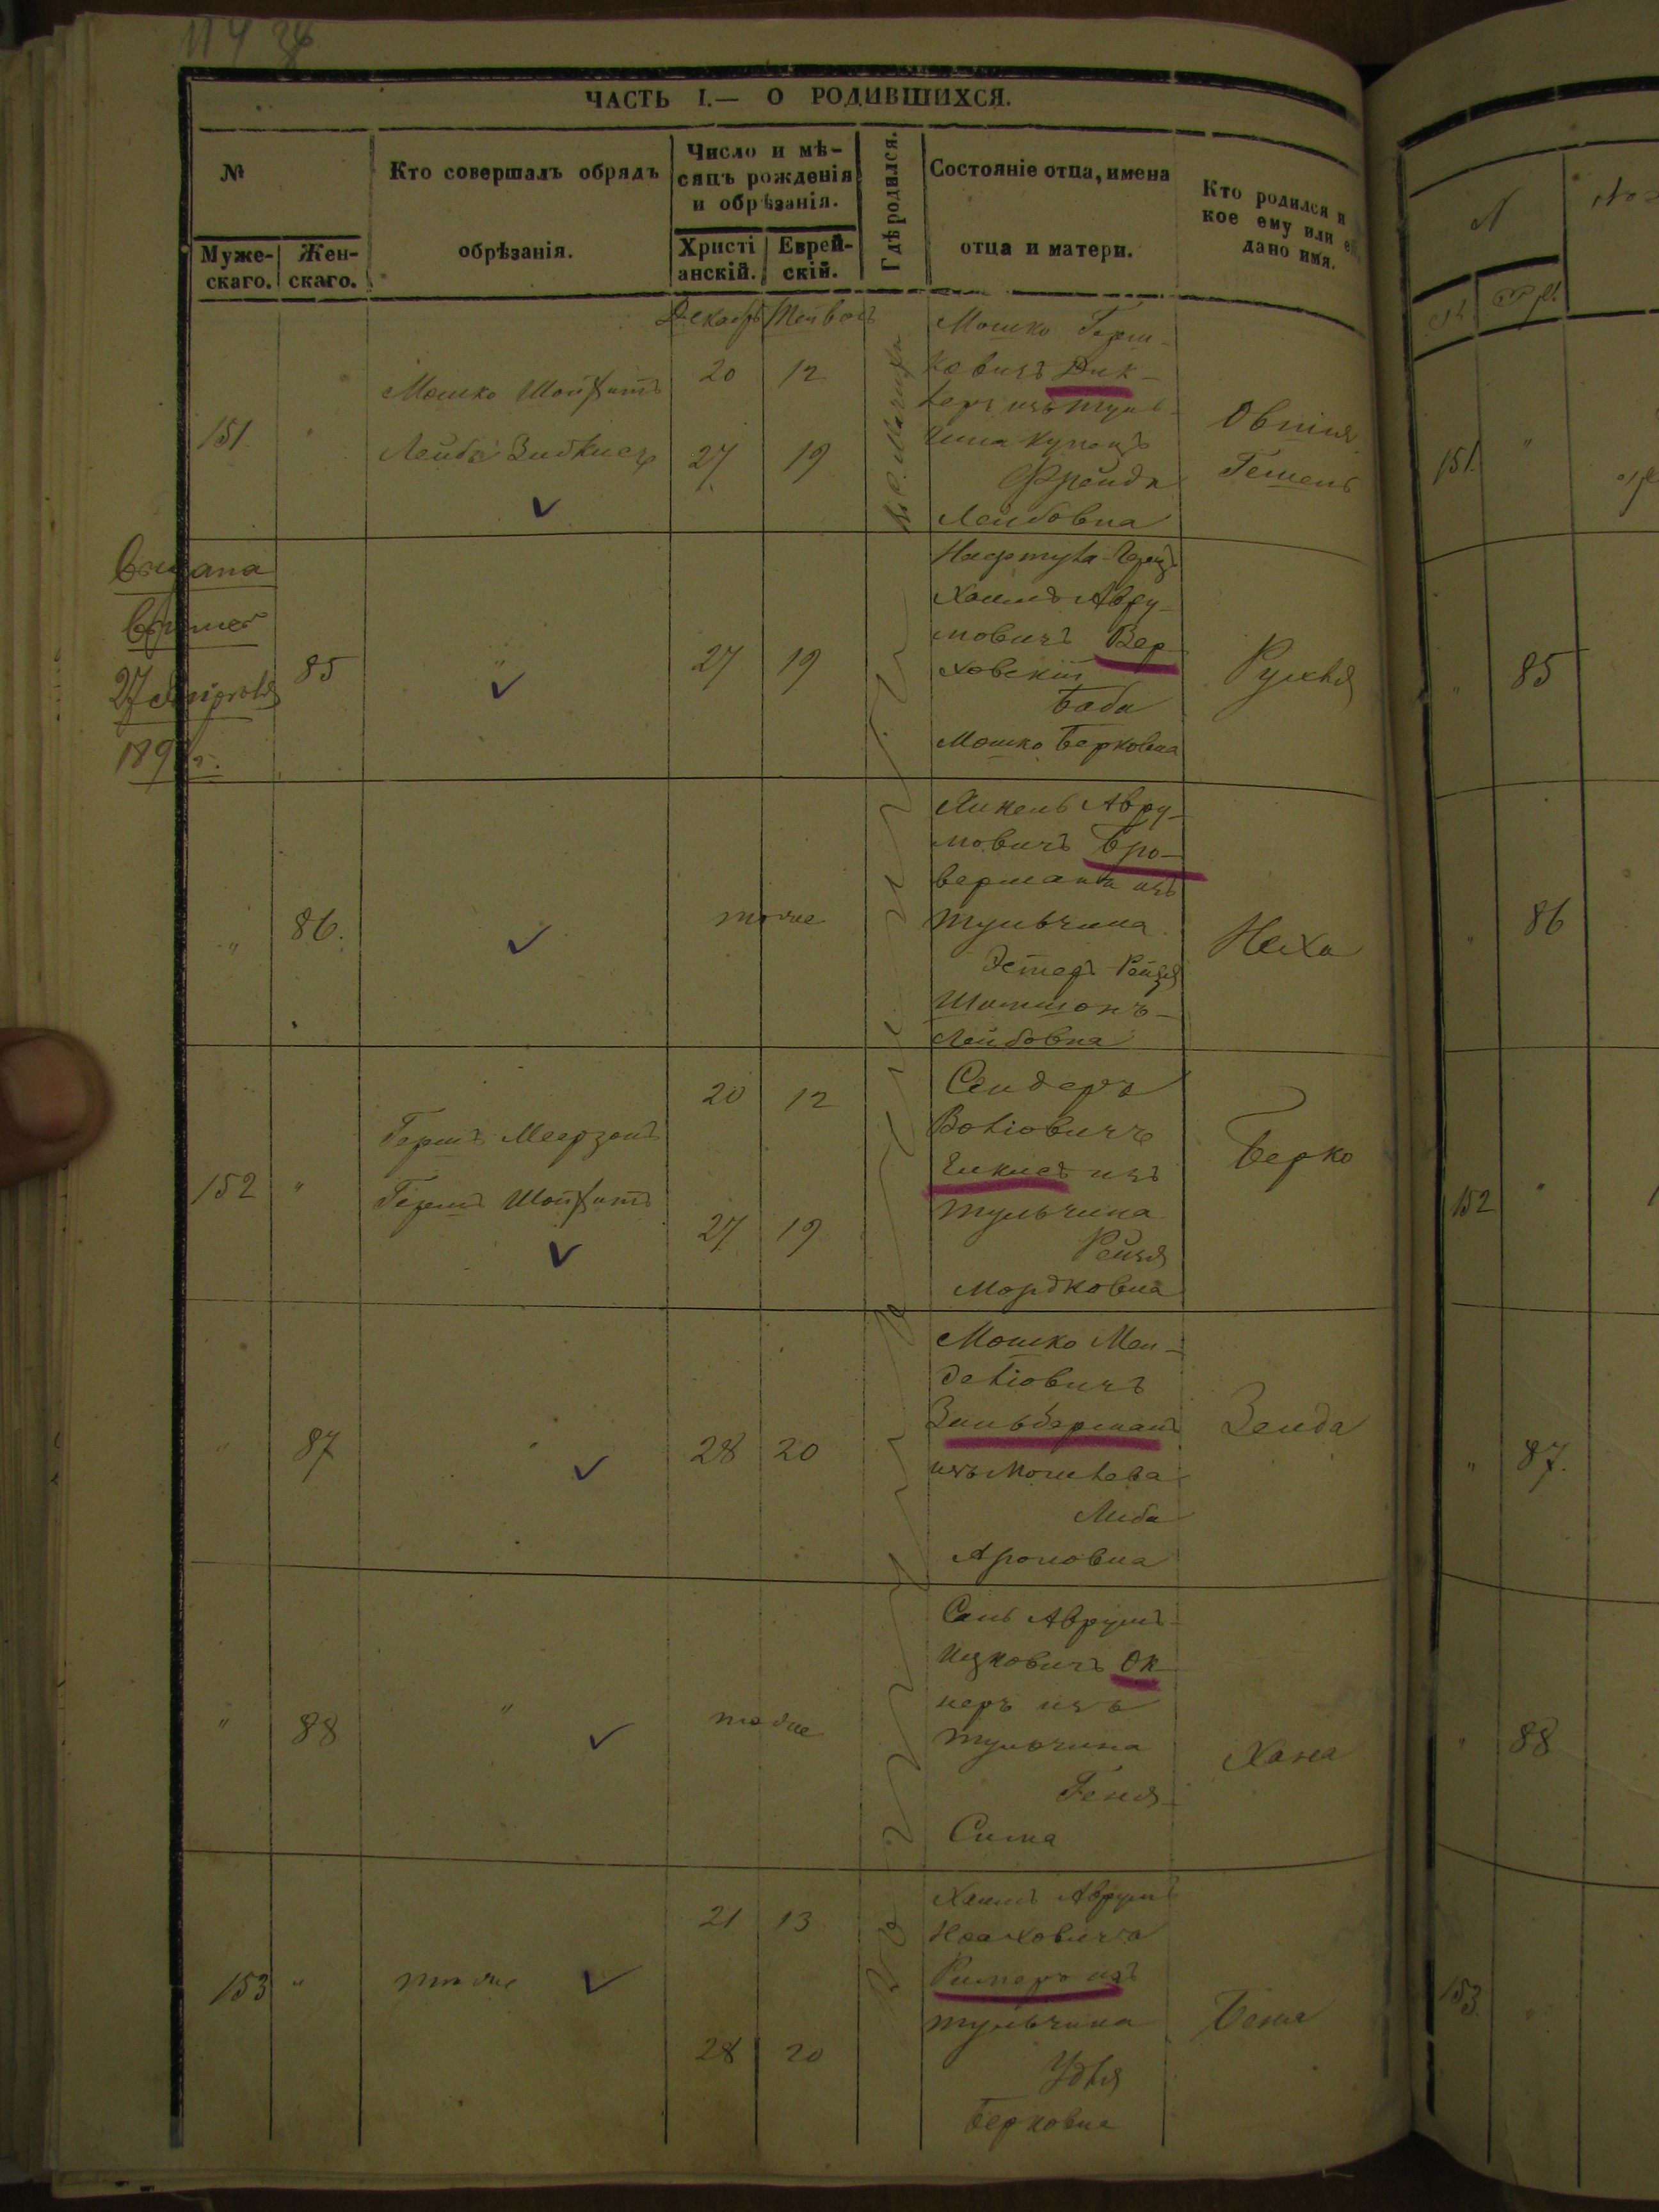 114
ЧАСТЬ I.— О РОДИВШИХСЯ.
№
Муже-
скаго.
Жен-
скаго.
Кто совершалъ обрядъ
обрѣзанія.
Число и мѣ-
сяцъ рожденія
и обрѣзанія.
Христі
анскій.
Еврей-
скій.
Гдѣ родился.
Состояніе отца, имена
отца и матери.
Кто родился и
кое ему или
дано имя.
Декабрь Тейвесъ
151
"
Мошко Шойхитъ
Лейба
20 12
27 19
Мошко Герш-
ковичъ Дик-
Тульчина купецъ
Фрейда
Лейбовна
Овшія
Гешель
27
85
"
27 19
Хаимъ Авру-
мовичъ Вер-
ховскій
Баба
Мошко Берковна
Рухля
"
86.
тоже
Янкель Авру-
мовичъ Бро-
верманъ изъ
Тульчина
Эстеръ Рейзя
Шимшонъ-
Лейбовна
Неха
152
"
Гершъ Меерзонъ
Шойхитъ
20 12
27 19
Сендеръ
изъ
Тульчина
Рейзя
Мордковна
Берко
"
87
28 20
Мошко Мен-
делiовичъ
Зильберманъ
изъ Могилева
Либа
Ароновна
Зенда
"
88
"
тоже
Аврумъ
Ицковичъ Ок-
неръ изъ
Тульчина
Геня-
Сима
Хана
153
"
тоже
21 13
28 20
Хаимъ Аврумъ
Ноаховичъ
изъ
Тульчина
Удля
Берковна
151.
"
"
85
"
86
152
"
"
87.
"
88
153